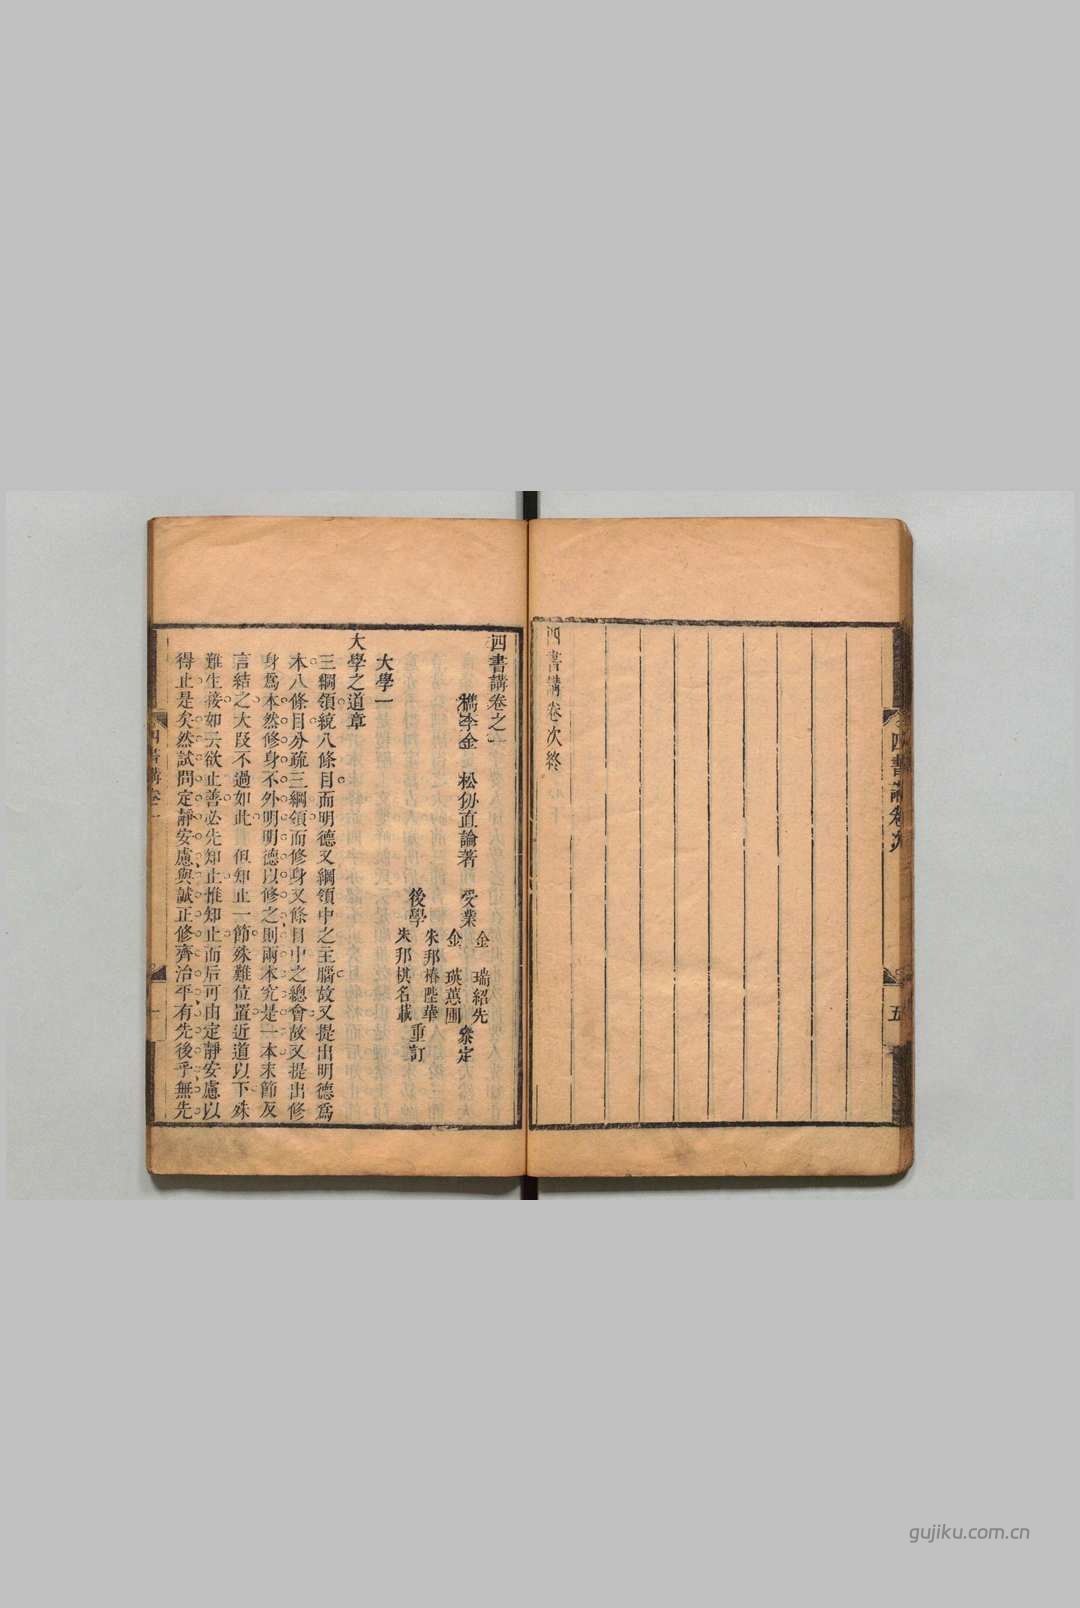 四書講卷次終
四書講卷次
五
四書講卷之一
檇李金 松仞直論著
受業
金 瑞紹先
金 瑛蕙圃
參定
後學
朱邦椿陛華
朱邦棋名載
重訂
大學一
大學之道章
三綱領統八條目而明德又綱領中之主腦故又提出明德爲
本八條目分疏三綱領而修身又條目中之總會故又提出修
身爲本然修身不外明明德以修之則兩本究是一本末節反
言結之大段不過如此但知止一節殊難位置近道以下殊
難生接如云欲止善必先知止惟知止而后可由定靜安慮以
得止是矣然試問定靜安慮與誠正修齊治平有先後乎無先
四書講卷一
一
gujiku.com.cn